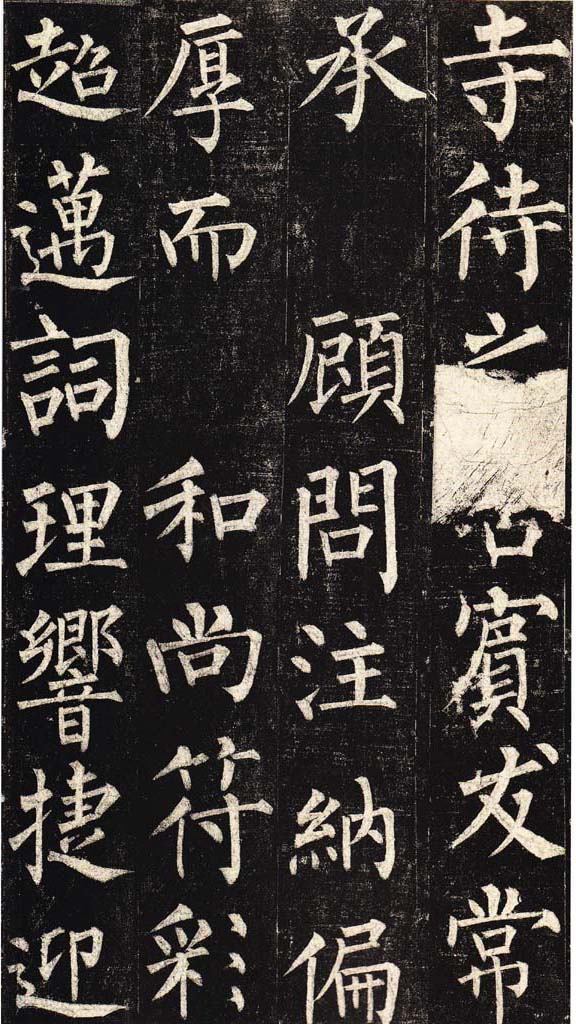 寺待之賓友常
承顧問注納偏
厚而和尚符彩
超邁詞理響捷迎